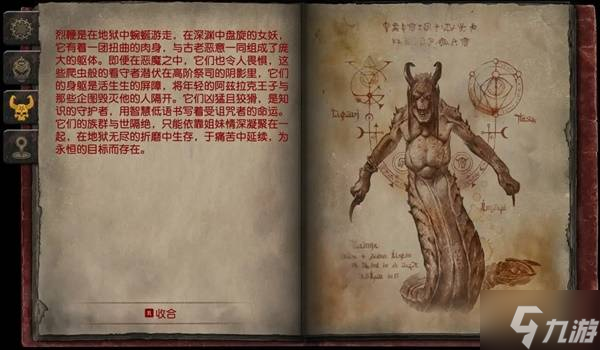 烈鞭是在地狱中蜿蜒游走，在深渊中盘旋的女妖，
它有着一团扭曲的肉身，与古老恶意一同组成了庞
大的躯体。即便在恶魔之中，它们也令人畏惧，这
些爬虫般的看守者潜伏在高阶祭司的阴影里，它们
的身躯是活生生的屏障，将年轻的阿兹拉克王子与
那些企图毁灭他的人隔开。它们凶猛且狡猾，是知
识的守护者，用智慧低语书写着受诅咒者的命运。
它们的族群与世隔绝，只能依靠姐妹情深凝聚在一
起，在地狱无尽的折磨中生存，于痛苦中延续，为
永恒的目标而存在。
收合
九游